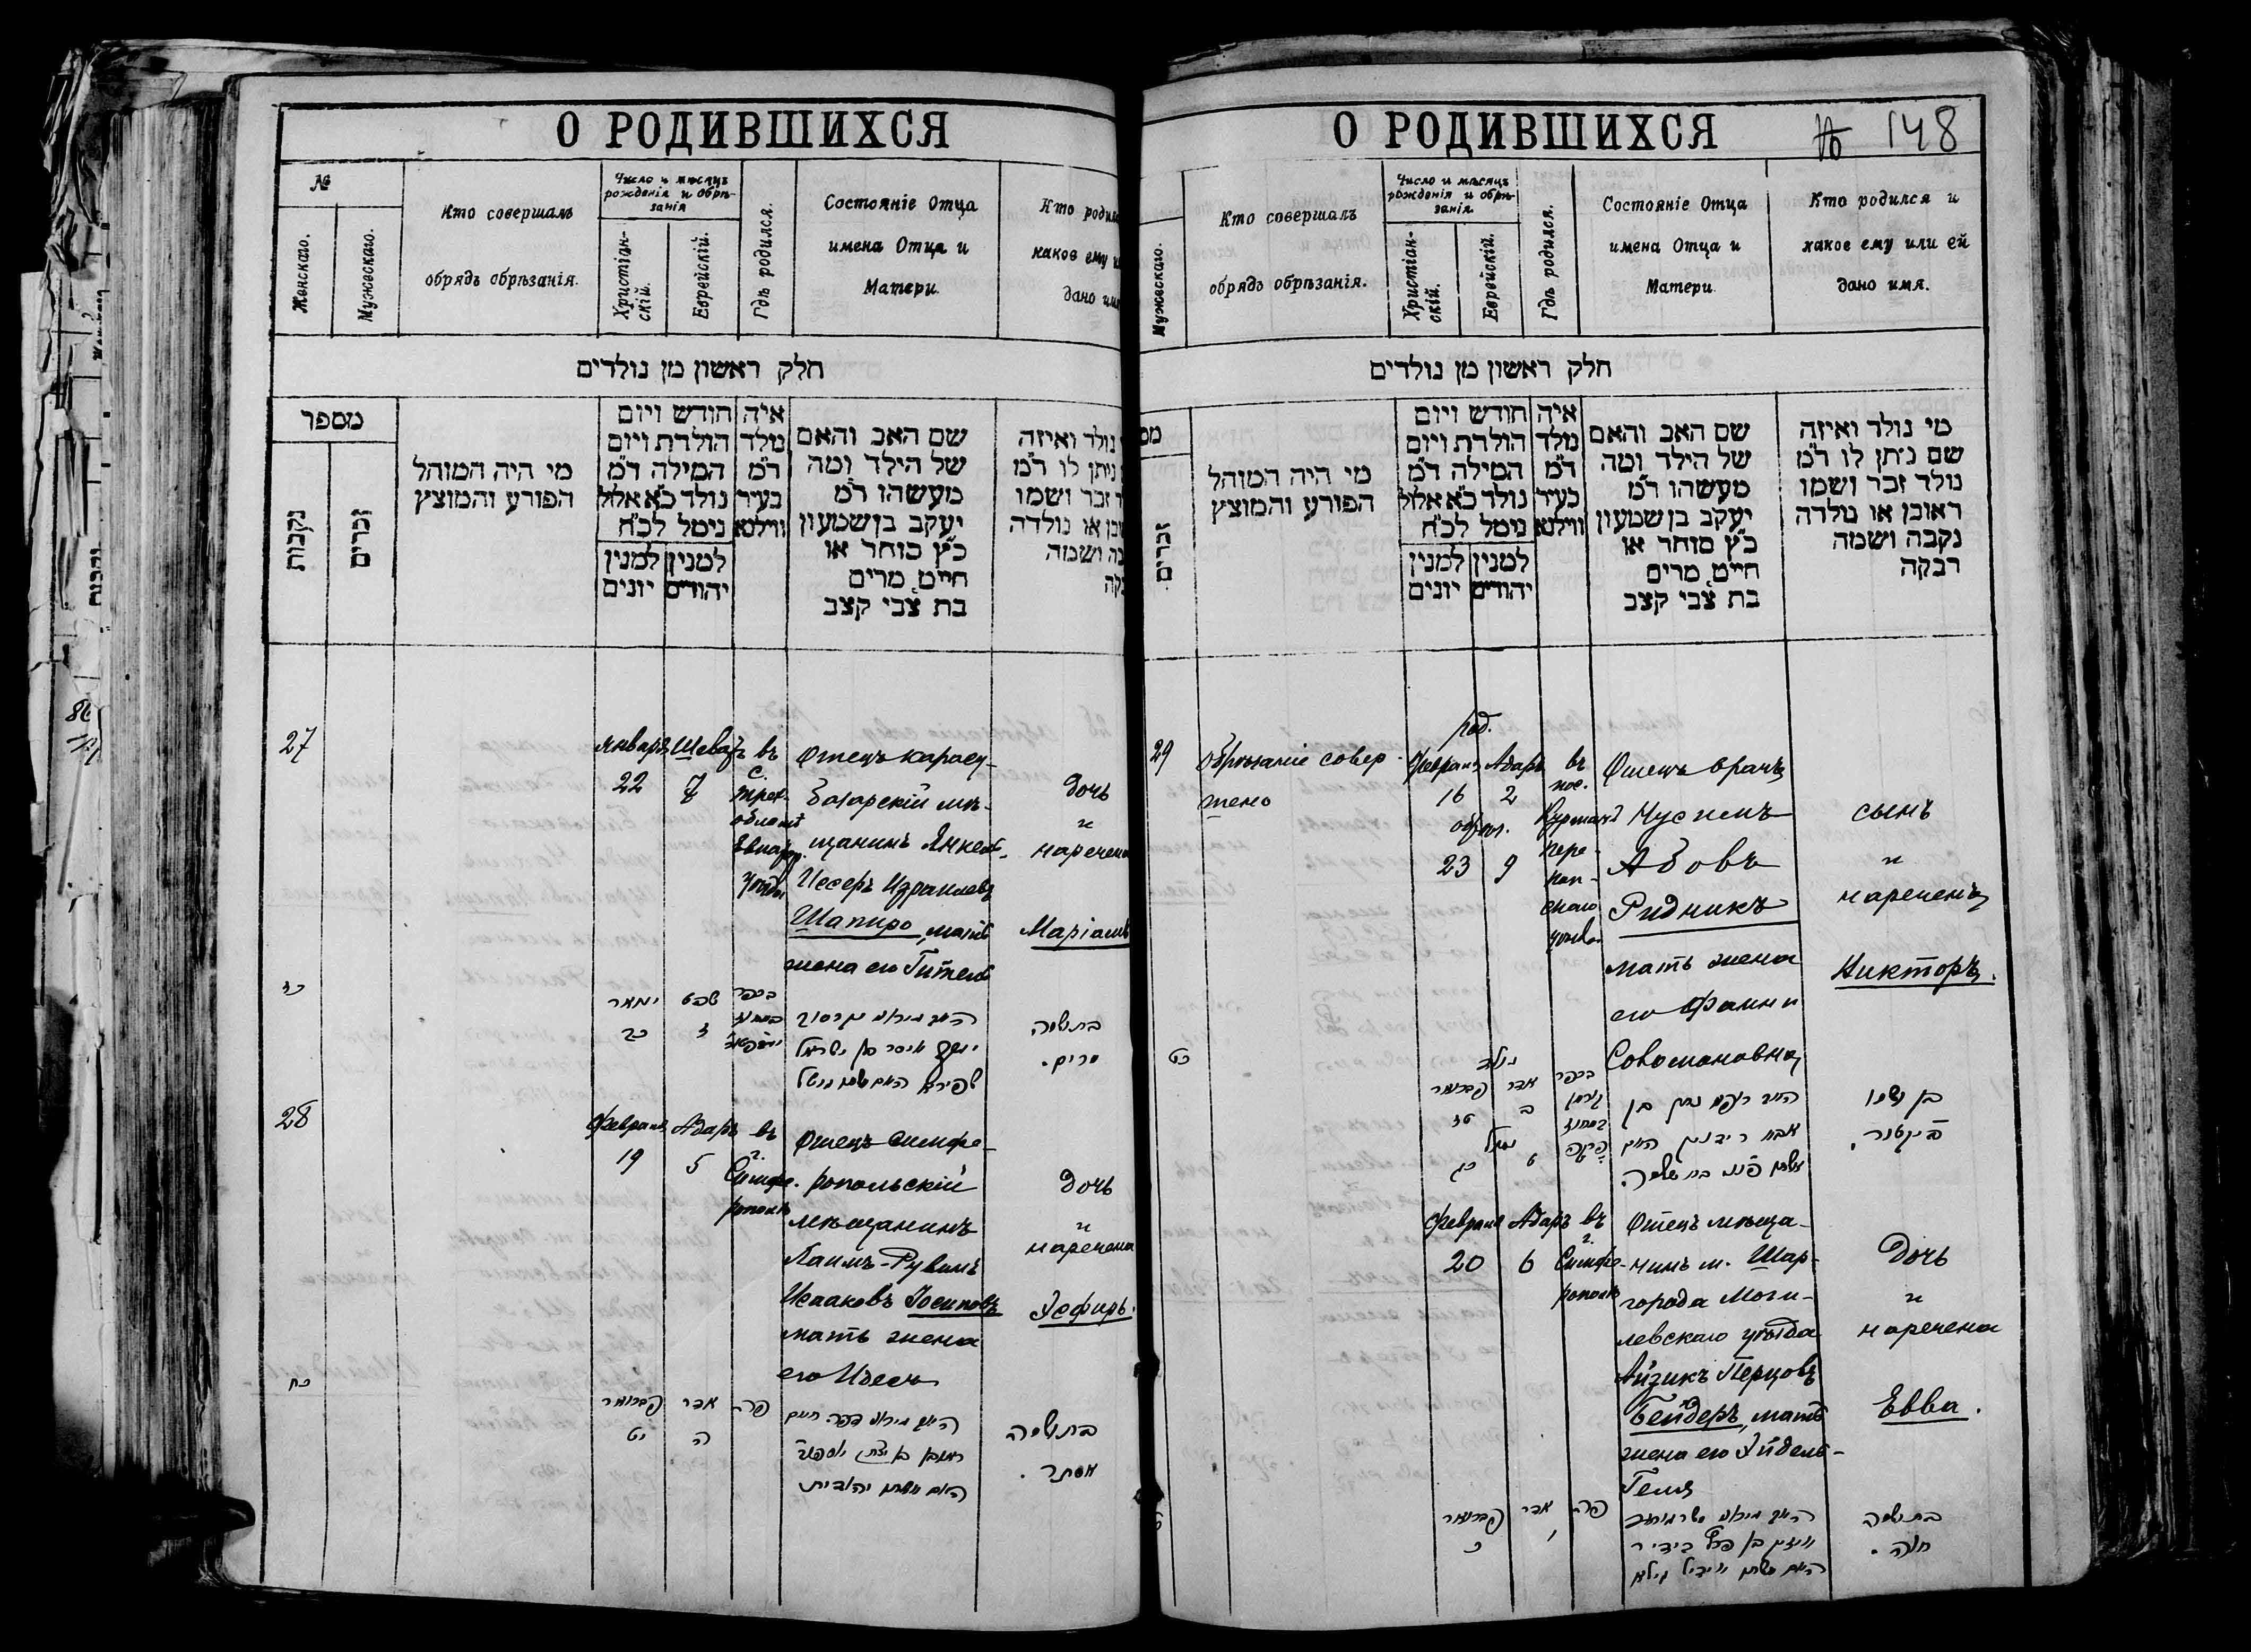 О РОДИВШИХСЯ
№
Женскаго.
Мужескаго.
Кто совершалъ
обрядъ обрѣзанія.
Число и мѣсяцъ
рожденія и обрѣ-
занія
Христіан-
скій.
Еврейскій.
Гдѣ родился.
Состояніе Отца
имена Отца и
Матери
Кто родил
какое ему и
дано им
חלק ראשון מן נולדים
מספר
נקבות
זכרים
מי היה המוהל
הפורע והמוצץ
חודש ויום
הולדת ויום
המילה ד״מ
נולד כ״א אלול
נימל לכ״ח
למנין למנין
יהודים יונים
איה
נולד
ד״מ
בעיר
ווילנא
שם האב והאם
של הילד ומה
מעשהו ד״מ
יעקב בן שמעון
כ״ץ סוחר או
חייט מרים
בת צבי קצב
נולד ואיזה
ניתן לו ד״מ
זכר ושמו
או נולדה
ושמה
27
Январь
22
Шеватъ
7
въ
с.
Отецъ карасу-
базарскій мѣ-
щанинъ Янкель-
Иссеръ Израилевъ
Шапиро, мать
жена его Гитель
Дочь
и
наречена
Маріамъ
כז
ינואר
כב
שבט
ז
בת ושמה
מרים.
28
Февраль
19
Адаръ
5
въ
г.
Симфе-
рополь
Отецъ симфе-
ропольскій
мѣщанинъ
Хаимъ-Рувинъ
Исааковъ Іосиповъ
мать жена
его Идесь
Дочь
и
наречена
Эсфирь.
כח
פברואר
יט
אדר
ה
בת ושמה
אסתר.
О РОДИВШИХСЯ
№ 148
Мужескаго.
Кто совершалъ
обрядъ обрѣзанія.
Число и мѣсяцъ
рожденія и обрѣ-
занія
Христіан-
скій.
Еврейскій.
Гдѣ родился.
Состояніе Отца
имена Отца и
Матери
Кто родился и
какое ему или ей
дано имя.
חלק ראשון מן נולדים
זכרים
מי היה המוהל
הפורע והמוצץ
חודש ויום
הולדת ויום
המילה ד״מ
נולד כ״א אלול
נימל לכ״ח
למנין למנין
יהודים יונים
איה
נולד
ד״מ
בעיר
ווילנא
שם האב והאם
של הילד ומה
מעשהו ד״מ
יעקב בן שמעון
כ״ץ סוחר או
חייט מרים
בת צבי קצב
מי נולד ואיזה
שם ניתן לו ד״מ
נולד זכר ושמו
ראובן או נולדה
נקבה ושמה
רבקה
29
обрѣзаніе совер-
шено
род.
Февраль
16
Адаръ
2
обрѣз.
23
9
въ
пос.
Курманъ
пере-
коп-
скаго
уѣзда
Отецъ врачъ
Нусимъ
Абовъ
Ридникъ
мать жена
его Фанни
Соломоновна
сынъ
и
нареченъ
Викторъ.
כט
נולד
פברואר
טז
אדר
ב
נימול
כג
ט
בן ושמו
וויקטור.
Февраля
20
Адаръ
6
въ
г.
Симфе-
рополь
Отецъ мѣща-
нинъ м. Шар-
города Моги-
левскаго уѣзда
Айзикъ Перцовъ
Бендеръ, мать
жена его Эйдель-
Геля
Дочь
и
наречена
Евва.
פברואר
כ
אדר
ו
בת ושמה
חוה.